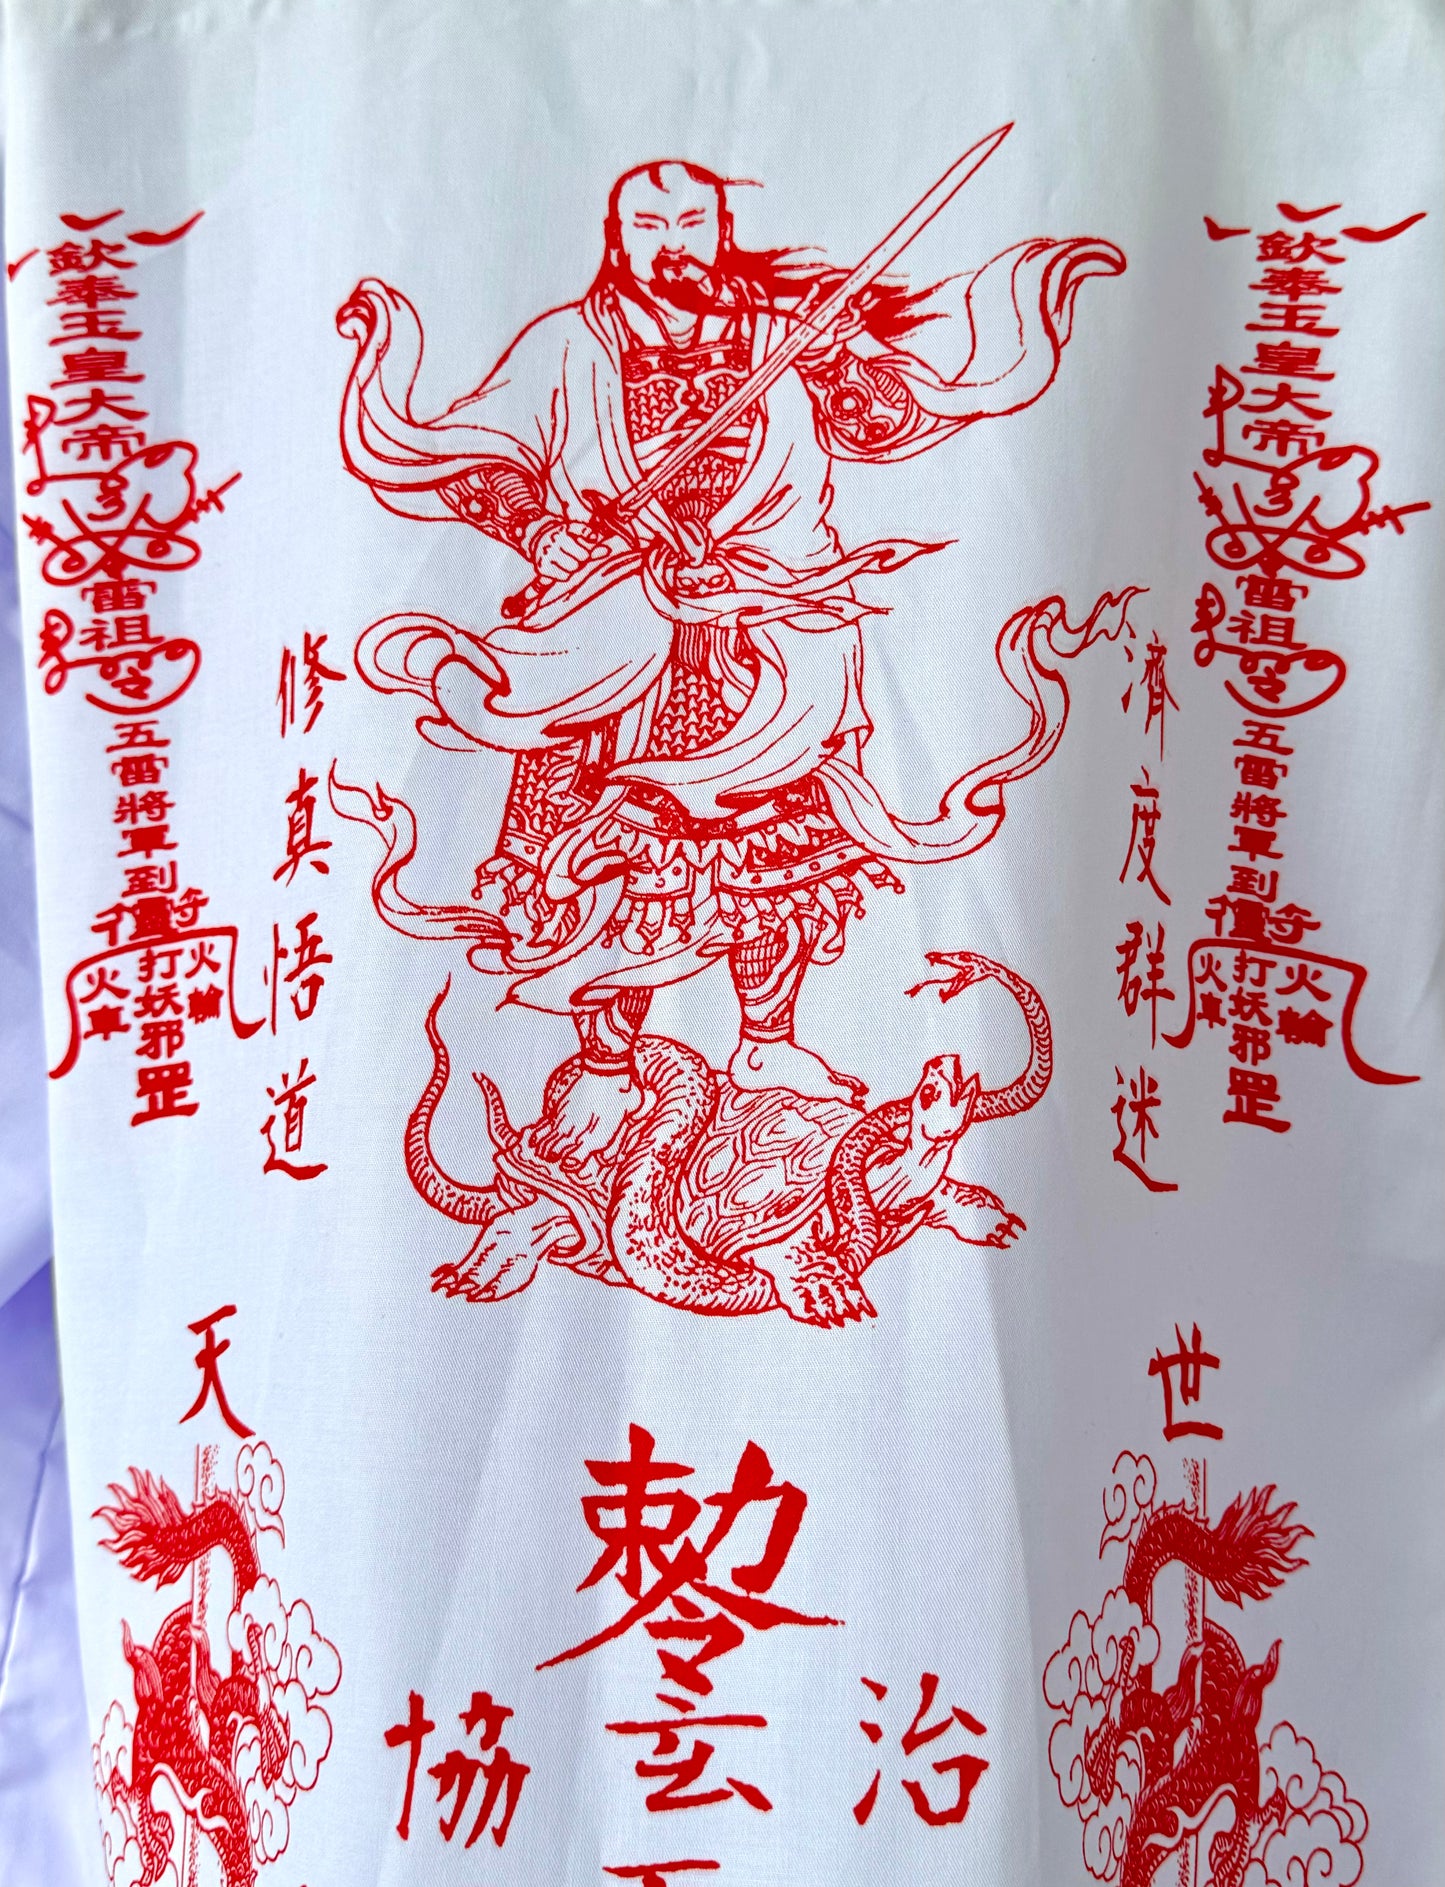 欽奉玉皇大帝
雷祖
令
五雷將軍到
打妖邪罡
火輪
火車
濟度群迷
修真悟道
欽奉玉皇大帝
雷祖
令
五雷將軍到
打妖邪罡
火輪
火車
世
天
敕令玄
治
協